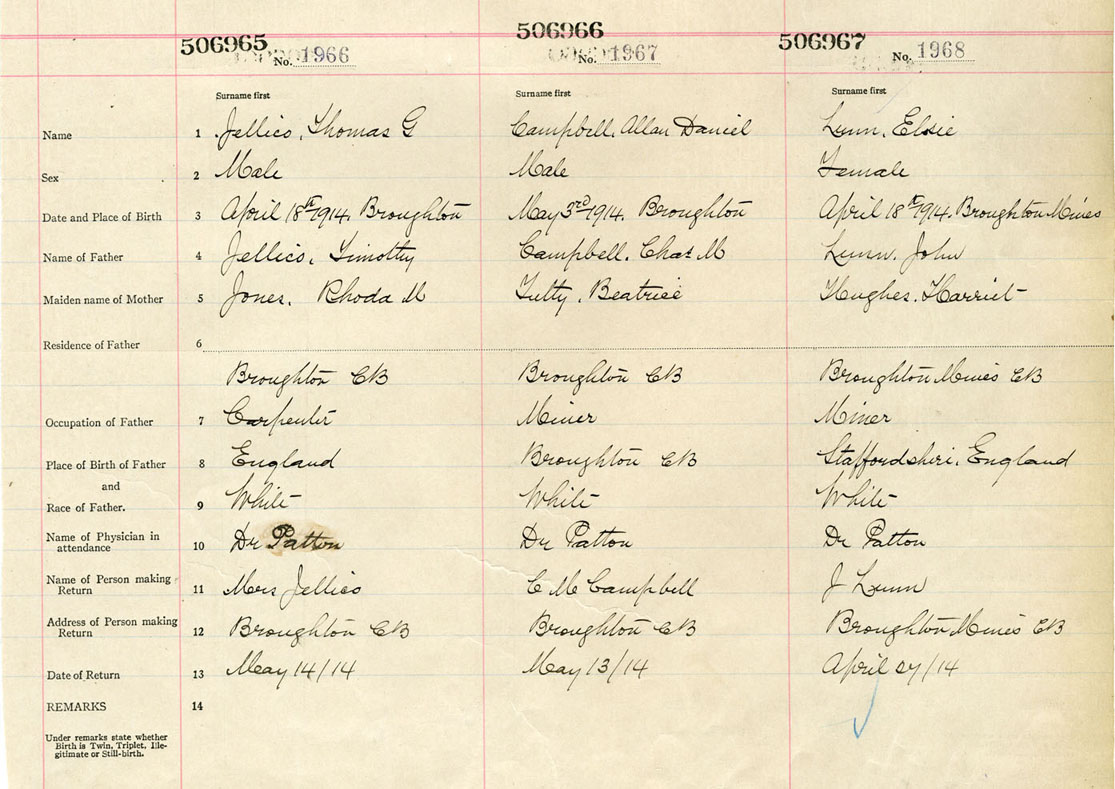 506965 506966 506967
No. 1966 No. 1967 No. 1968
Surname first Surname first Surname first
Name 1 Jellico, Thomas G Campbell, Allan Daniel Lunn, Elsie
Sex 2 Male Male Female
Date and Place of Birth 3 April 18th 1914, Broughton May 3rd 1914, Broughton April 18th 1914, Broughton Mines
Name of Father 4 Jellico, Timothy Campbell, Chas M Lunn, John
Maiden name of Mother 5 Jones, Rhoda M Tutty, Beatrice Hughes, Harriet
Residence of Father 6
Broughton CB Broughton CB Broughton Mines CB
Occupation of Father 7 Carpenter Miner Miner
Place of Birth of Father 8 England Broughton CB Staffordshire, England
and
Race of Father. 9 White White White
Name of Physician in
attendance 10 Dr Patton Dr Patton Dr Patton
Name of Person making
Return 11 Mrs Jellico C M Campbell J Lunn
Address of Person making
Return 12 Broughton CB Broughton CB Broughton Mines CB
Date of Return 13 May 14/14 May 13/14 April 27/14
REMARKS 14
Under remarks state whether
Birth is Twin, Triplet, Ille-
gitimate or Still-birth.